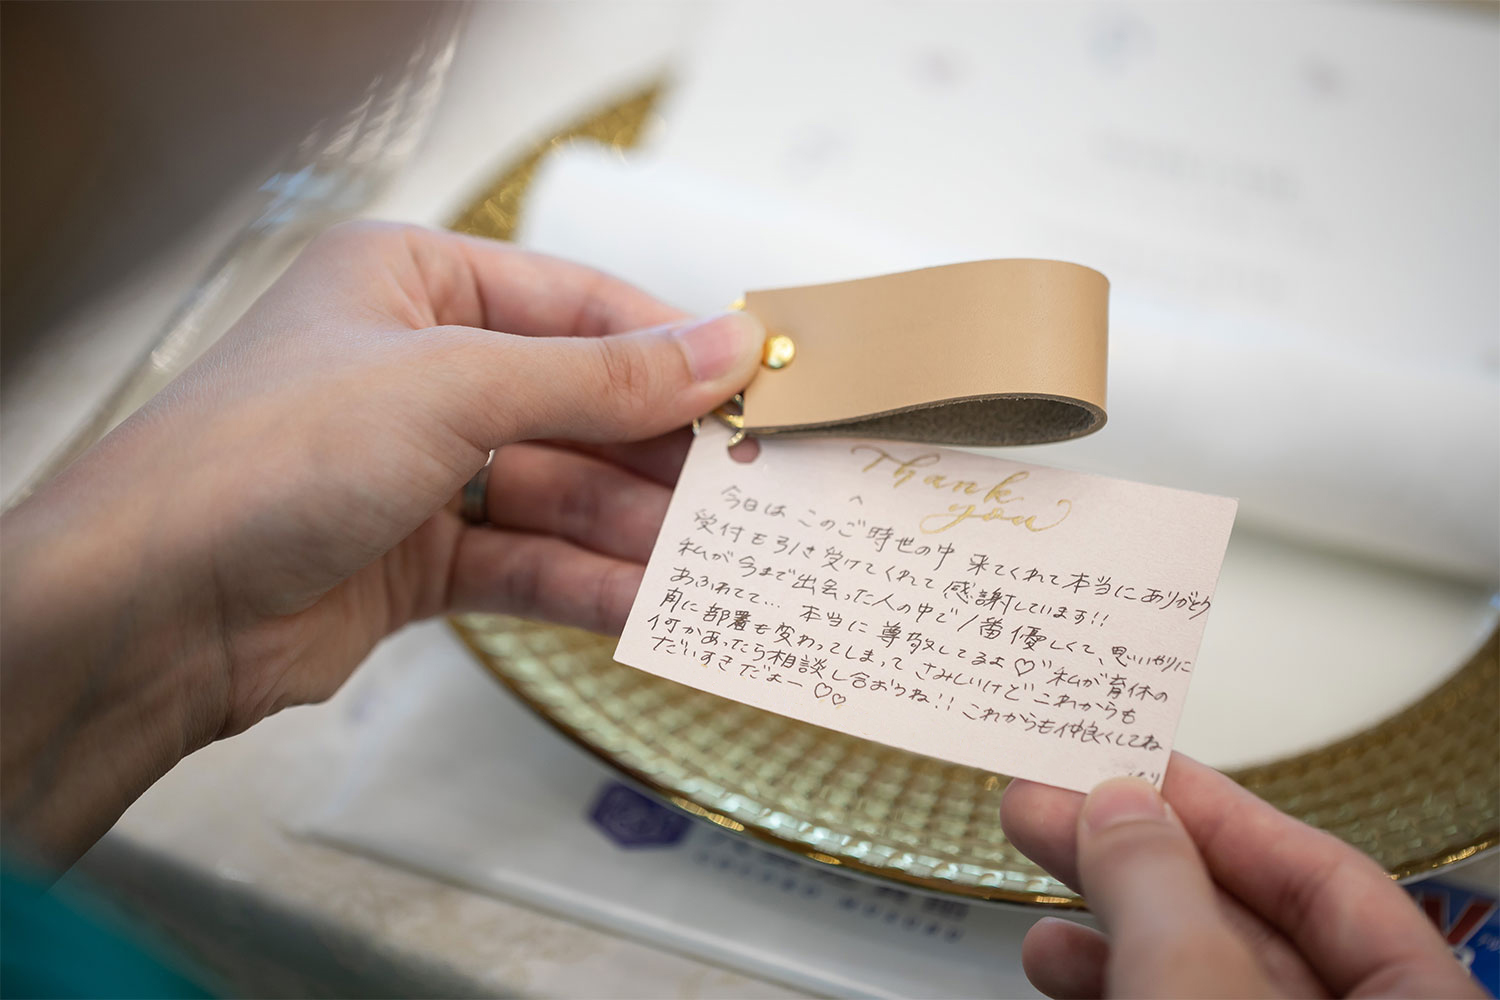 Thank
you
今日は このご時世の中 来てくれて本当にありがとう
受付も引き受けてくれて感謝しています!!
私が今まで出会った人の中で1番優しくて、思いやりに
あふれてて… 本当に尊敬してるよ♡ 私が育休の
間に部署も変わってしまって さみしいけど これからも
何かあったら相談し合おうね!! これからも仲良くしてね
だいすきだよー♡♡